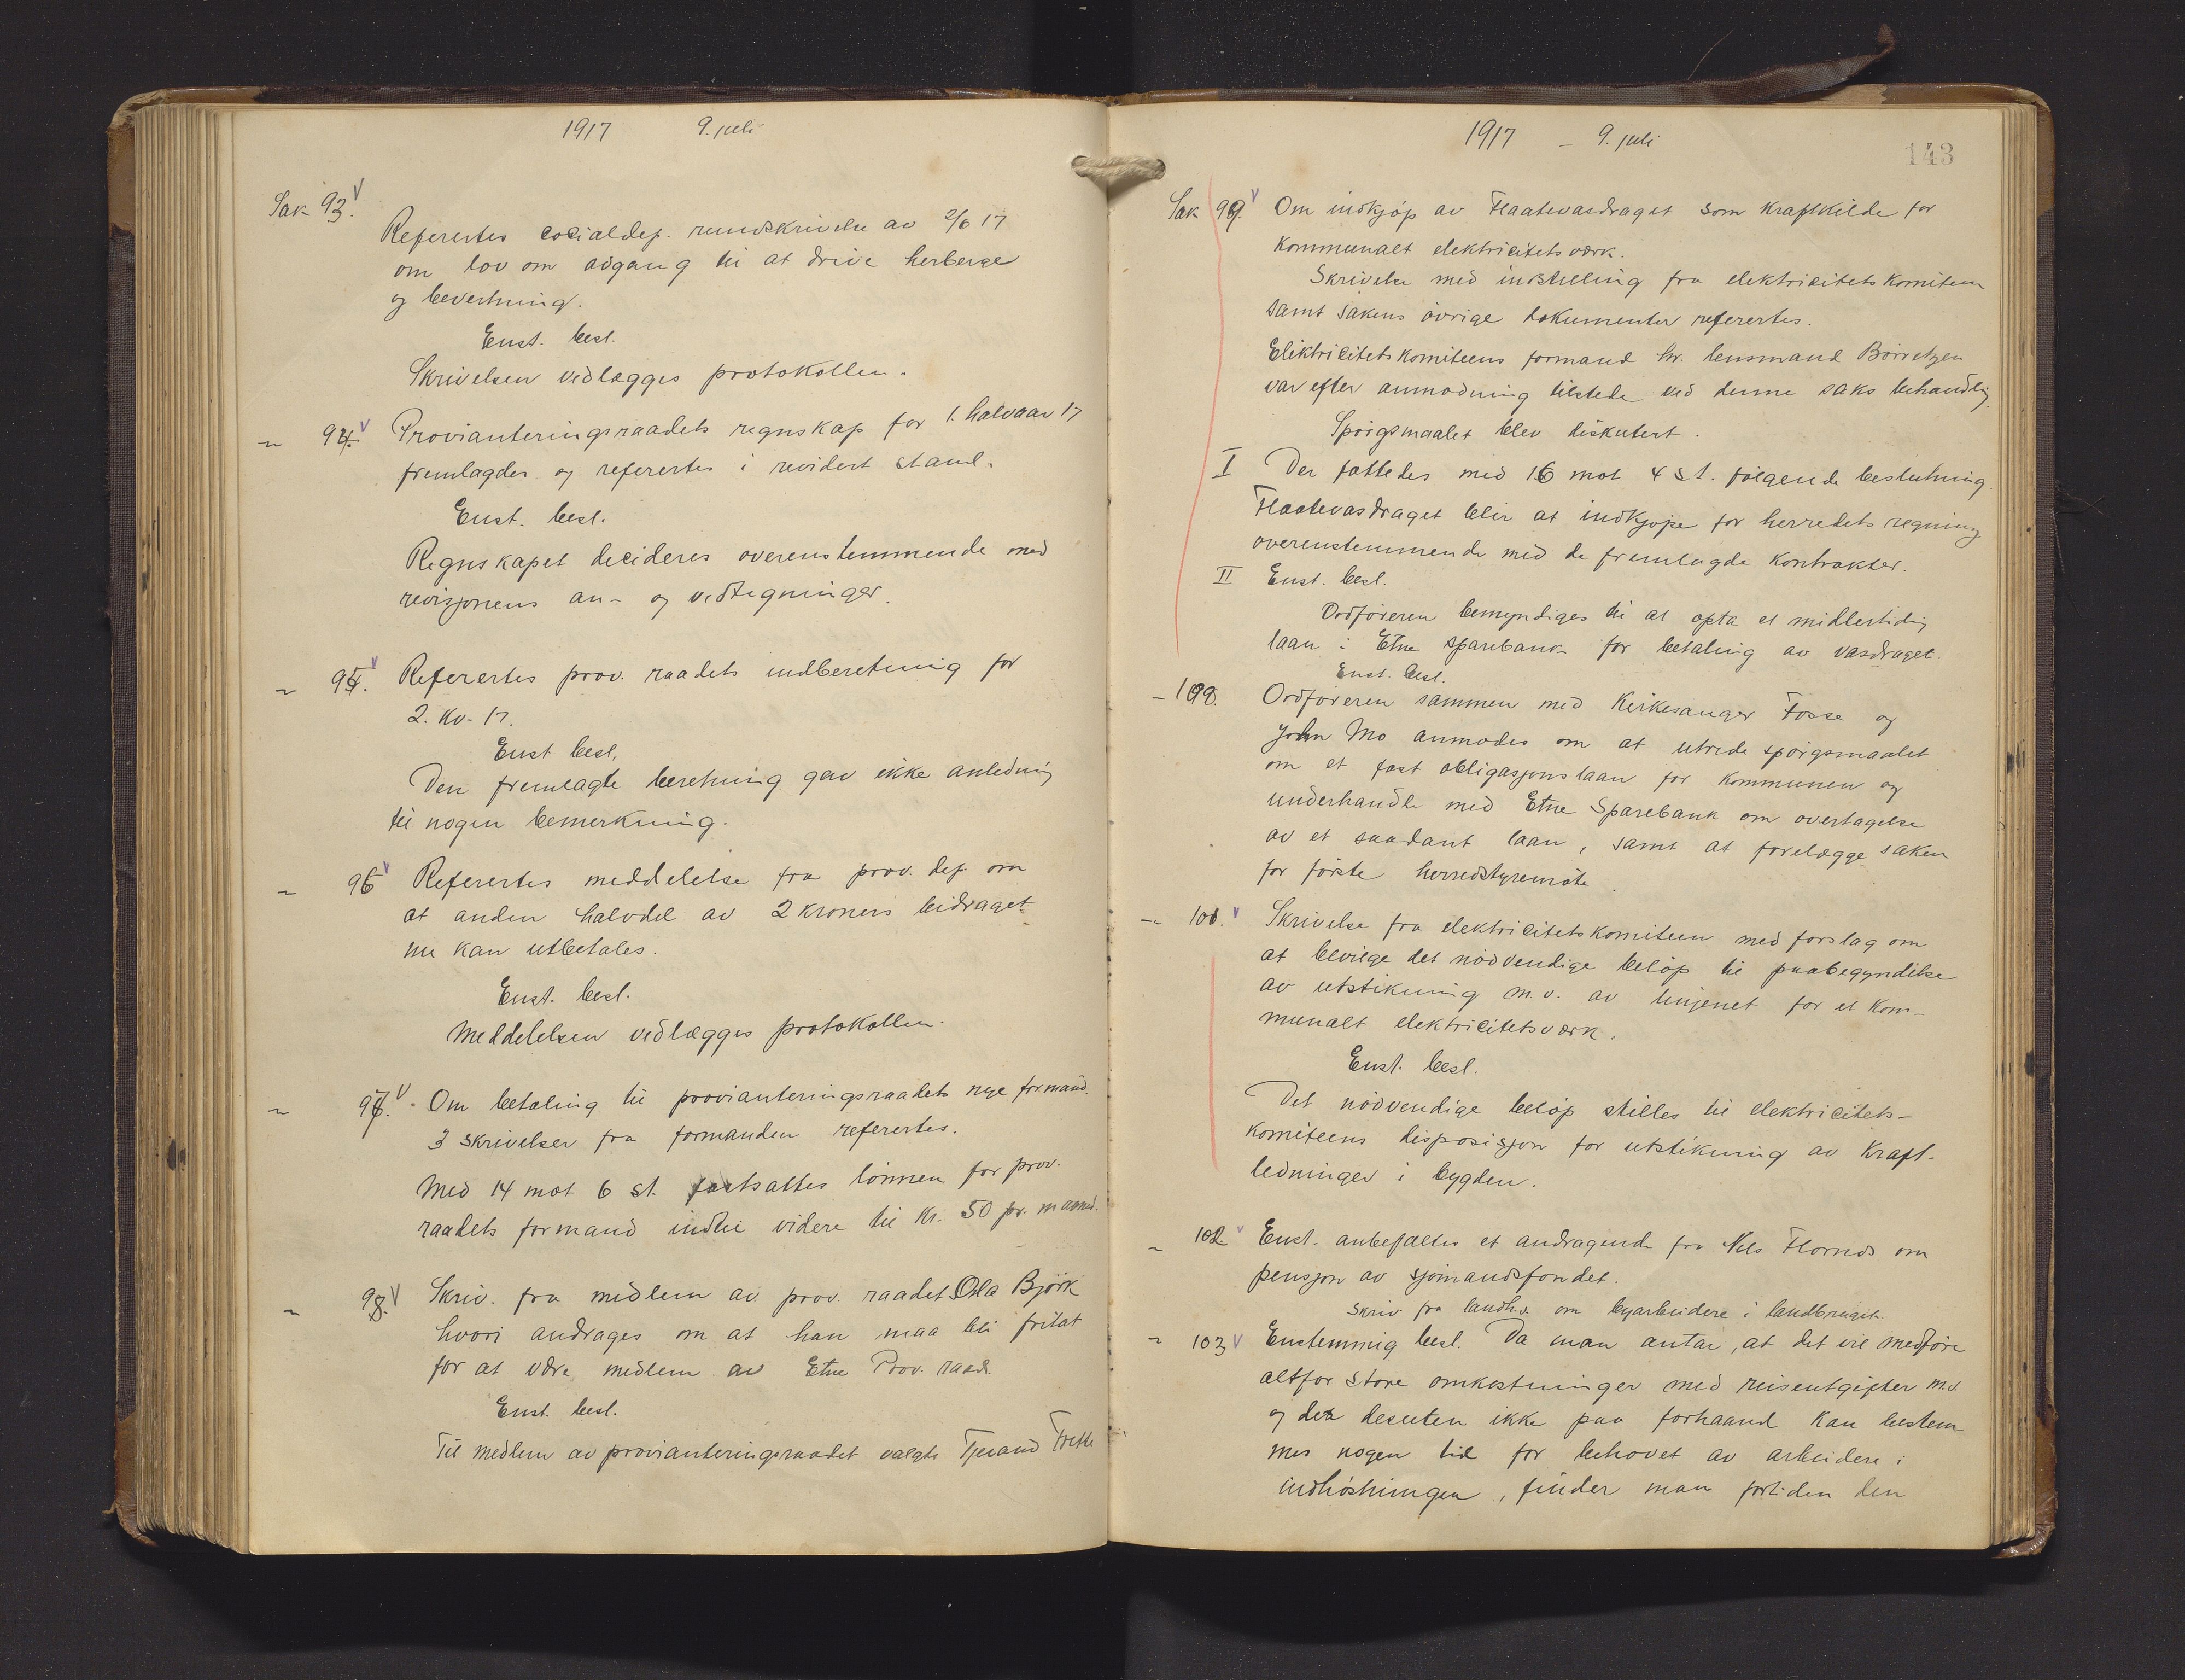 1917 9. juli
Sak 93.
Referertes socialdep. rundskrivelse av 2/6 17
om lov om adgang til at drive herberge
og bevertning.
Enst. besl.
Skrivelsen vedlægges protokollen.
" 94. Provianteringsraadets regnskap for 1. halvaar 17
fremlagdes og referertes i revidert stand.
Enst. besl.
Regnskapet decideres overenstemmende med
revisjonens an- og vedtegninger.
" 95. Referertes prov. raadets indberetning for
2. kv. 17.
Enst besl,
Den fremlagte beretning gav ikke anledning
til nogen bemerkning.
" 96 Referertes meddelelse fra prov. dep. om
at anden halvdel av 2 kroners bidraget
nu kan utbetales.
Enst. besl.
Meddelelsen vedlægges protokollen.
" 97. Om betaling til provianteringsraadets nye formand.
3 skrivelser fra formanden referertes.
Med 14 mot 6 st. fastsattes lönnen for prov.
raadets formand indtil videre til kr. 50 pr. maaned.
" 98. Skriv. fra medlem av prov. raadet Ola Björk
hvori andrages om at han maa bli fritat
for at være medlem av Etne Prov. raad.
Enst. besl.
Til medlem av provianteringsraadet valgte Tjerand Frette
1917 – 9. juli
143
Sak 99. Om indkjöp av Flaatevasdraget som kraftkilde for
kommunalt elektricitetsværk.
Skrivelse med indstilling fra elektricitetskomiteen
samt sakens övrige dokumenter referertes.
Elektricitetskomiteens formand hr. lensmand Börretzen
var efter anmodning tilstede ved denne saks behandling.
Spörgsmaalet blev diskutert.
I Der fattedes med 16 mot 4 st. fölgende beslutning.
Flaatevasdraget blir at indkjöpe for herredets regning
overenstemmende med de fremlagde kontrakter.
II Enst. besl.
Ordföreren bemyndiges til at opta et midlertidig
laan i Etne sparebank for betaling av vasdraget.
Enst. besl.
– 100. Ordföreren sammen med kirkesanger Fosse og
John Mo anmodes om at utrede spörgsmaalet
om et fast obligasjonslaan for kommunen og
underhandle med Etne Sparebank om overtagelse
av et saadant laan, samt at forelægge saken
for förste herredstyremöte.
– 101. Skrivelse fra elektricitetskomiteen med forslag om
at bevilge det nödvendige belöp til paabegyndelse
av utstikning m.v. av linjenet for et kom-
munalt elektricitetsværk.
Enst. besl.
Det nödvendige belöp stilles til elektricitets-
komiteens disposisjon for utstikning av kraft-
ledninger i bygden.
" 102. Enst. anbefaltes et andragende fra Nels om
pensjon av sjömandsfondet.
Skriv fra landh.v. om byarbeidere i landbruget
" 103 Enstemmig besl. Da man antar, at det vil medföre
altfor store omkostninger med reiseutgifter m.v.
og det desuten ikke paa forhaand kan bestem
mes nogen tid for behovet av arbeidere i
indhöstningen, finder man fortiden den